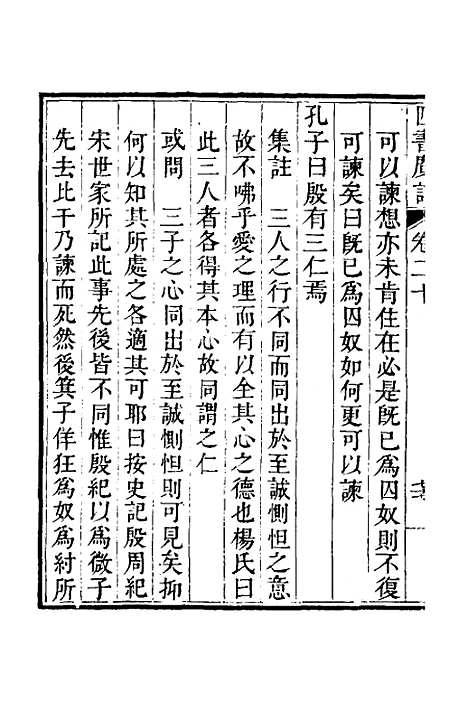 四書
卷二十
可以諫想亦未肯住在必是旣已爲囚奴則不復
可諫矣曰旣已爲囚奴如何更可以諫
孔子曰殷有三仁焉
集註　三人之行不同而同出於至誠惻怛之意
故不咈乎愛之理而有以全其心之德也楊氏曰
此三人者各得其本心故同謂之仁
或問　三子之心同出於至誠惻怛則可見矣抑
何以知其所處之各適其可耶曰按史記殷周紀
宋世家所記此事先後皆不同惟殷紀以爲微子
先去比干乃諫而死然後箕子佯狂爲奴爲紂所